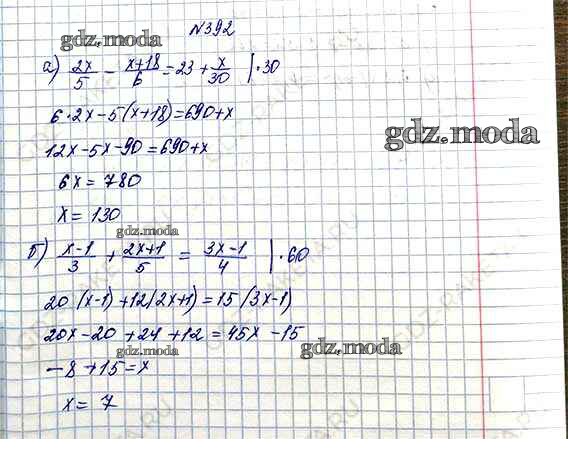 №392
gdz.moda
а) 2x/5 - x+18/6 = 23 + x/30 |·30
6·2x-5(x+18)=690+x
gdz.moda
12x-5x-90=690+x
6x=780
x=130
gdz.moda
б) x-1/3 + 2x+1/5 = 3x-1/4 |·60
20(x-1)+12(2x+1)=15(3x-1)
20x-20+24+12=45x-15
gdz.moda gdz.moda
-8+15=x
x=7